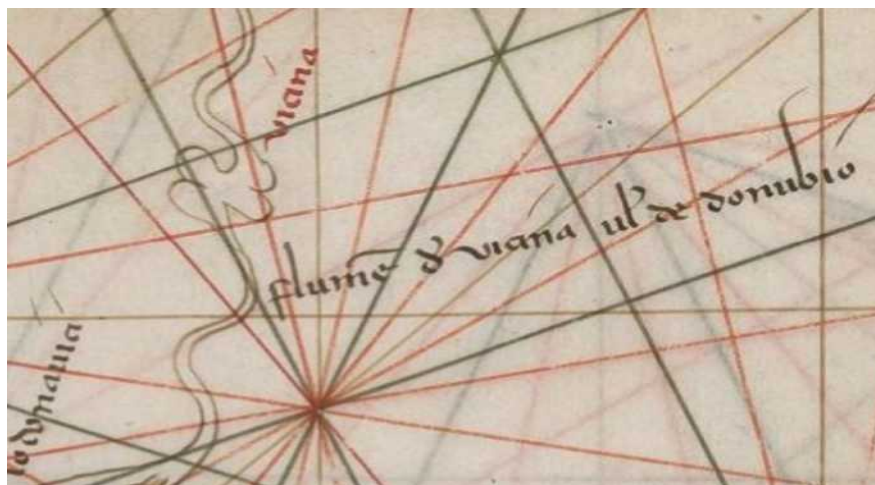 viana
flumē đ viana ul̉ de donubio
lo dunauia